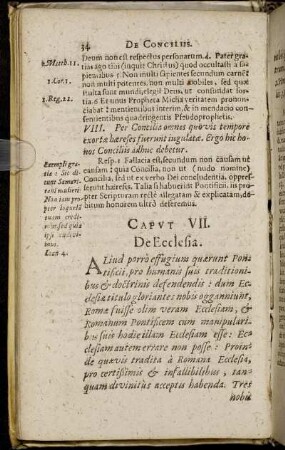 34 DE CONCILIIS.
Deum non est respectus personarum. 4. Pater gratias
ago tibi (inquit Christus) quod occultasti a sapientibus
5. Non multi sapientes secundum carnem
non multi potentes, non multi nobiles, sed quæ
stulta sunt mundi, elegit Deus, ut confundat fortia.
6 Et unus Propheta Michæas veritatem pronunciabat:
mentientibus interim, & in mendacio consentientibus
quadringentis Pseudoprophetis.
VIII. Per Concilia omnes quovis tempore
exortæ hæreses fuerunt jugulatæ. Ergo hic honos
Conciliis adhuc debetur.
Resp. 1 Fallacia est, secundum non causam ut
causam: quia Concilia, non ut (nudo nomine)
Concilia, sed ut ex verbo Dei concludentia, oppresserunt
hæreses. Talia si habuerint Pontificii, iis propter
Scripturam rectè allegatam & explicatam, debitum
honorem ultrò deferemus.
2. Matth. 11.
1. Cor. 1.
1. Reg. 22.
Exempli gratia
Joan 4.
CAPUT VII.
De Ecclesia.
Aliud porrò effugium quærunt Pontificii,
pro humanis suis traditionibus
& doctrinis defendendis: dum Ecclesiæ
titulo gloriantes: nobis oggannunt,
Romæ fuisse olim veram Ecclesiam, &
Romanum Pontificem cum manipularibus
suis hodie illam Ecclesiam esse: Ecclesiam
autem errare non posse: Proinde
quævis tradita à Romana Ecclesia,
pro certissimis & infallibilibus, tanquam
divinitùs acceptis habenda. Tres
nobis